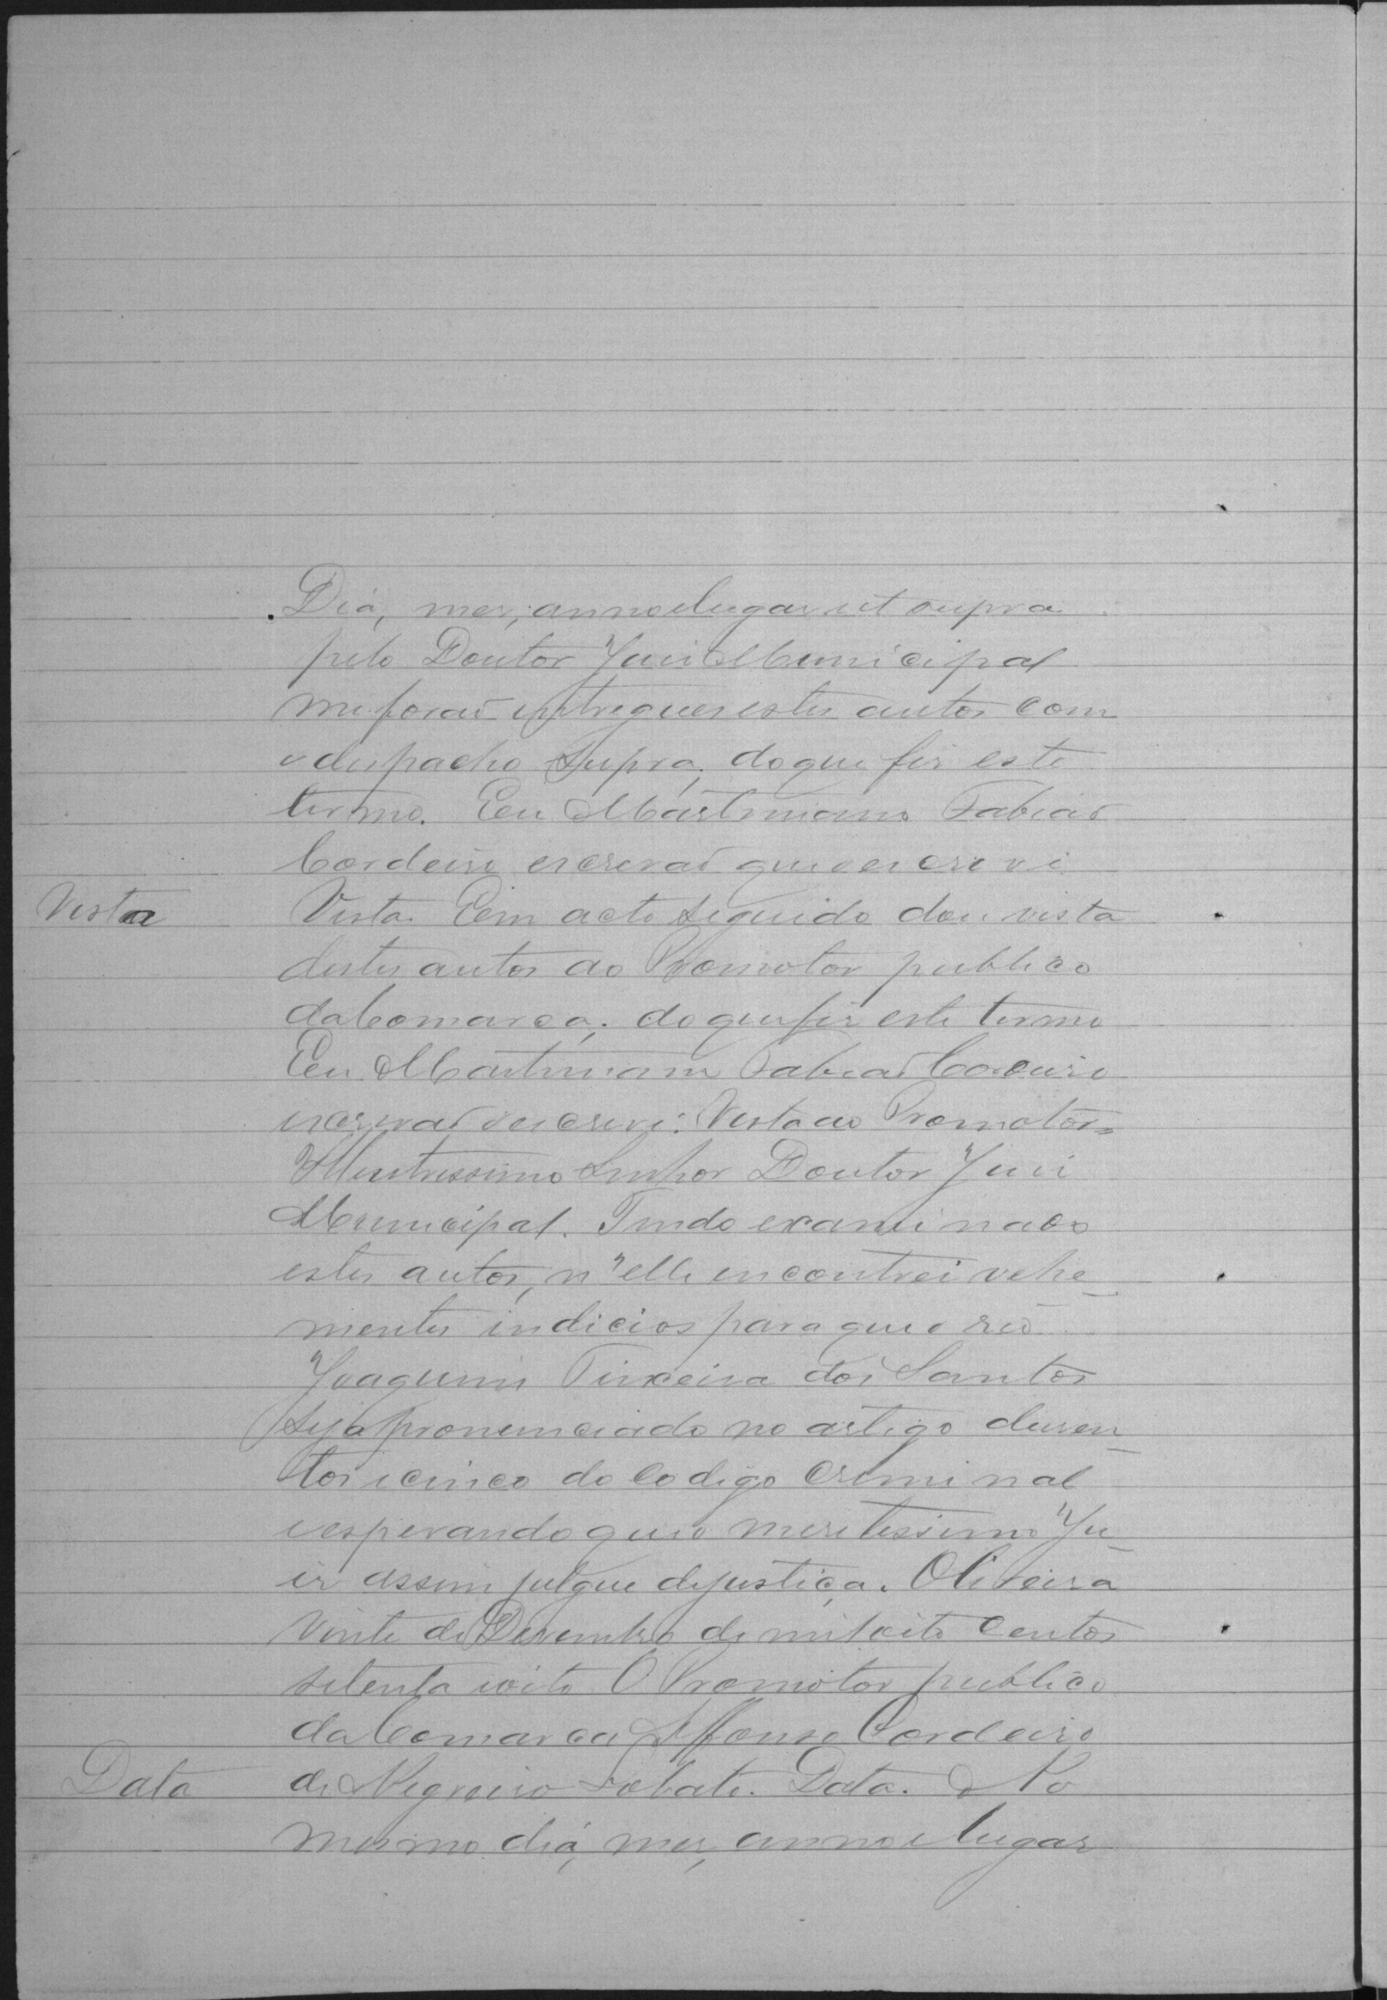 Dia, mes, anno e lugar ut supra
pelo Doutor Juiz Municipal
me forao entregues estes autos com
o despacho supra, do que fiz este
termo. Eu Martiniano Fabiaõ
Cordeiro escrevaõ que o escrevi
Vista
Vista. Eem acto seguido dou vista
destes autos ao Promotor publico
da Comarca; do que fiz este termo
Eu Martiniano Fabiaõ Cordeiro
escrevaõ o escrevi. Vista ao Promotor=
Illustrissimo Senhor Doutor Juiz
Municipal. Tendo examinado
estes autos, n'elle encontrei vehe_
mentes indicios para que o reo
Joaquim Teixeira dos Santos
seja pronunciado no artigo duzen_
tos e cinco do Codigo Criminal
e esperando que o meretissimo Ju_
iz assim julgue de justiça. Oliveira
vinte de Desembro de mil oito centos
setenta e oito O Promotor publico
da Comarca Affonso Cordeiro
Data
de Negreiro Lobato. Data. No
mesmo dia, mes, anno e lugar